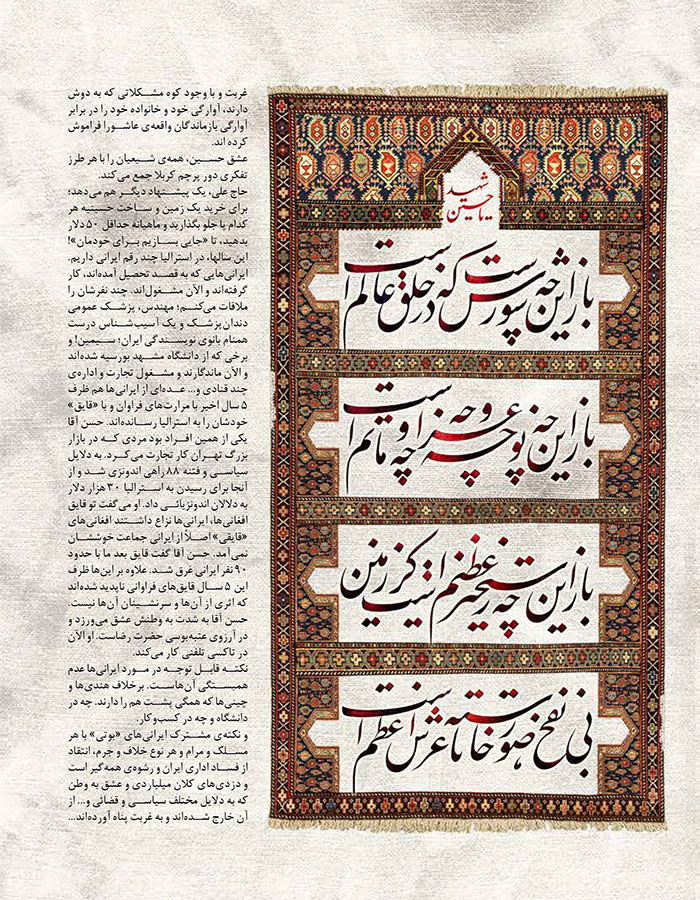 یا حسین
شهید
باز این چه شورش است که در خلق عالم است
باز این چه نوحه و چه عزا و چه ماتم است
باز این چه رستخیز عظیم است کز زمین
بی نفخ صور خاسته تا عرش اعظم است
غربت و با وجود کوه مشکلاتی که به دوش
دارند، آوارگی خود و خانواده خود را در برابر
آوارگی بازماندگان واقعه‌ی عاشورا فراموش
کرده اند.
عشق حسین، همه‌ی شیعیان را با هر طرز
تفکری دور پرچم کربلا جمع می‌کند.
حاج علی، یک پیشنهاد دیگر هم می‌دهد؛
برای خرید یک زمین و ساخت حسینیه هر
کدام پا جلو بگذارید و ماهیانه حداقل ۵۰ دلار
بدهید، تا «جایی بسازیم برای خودمان»!
این سالها، در استرالیا چند رقم ایرانی داریم.
ایرانی‌هایی که به قصد تحصیل آمده‌اند، کار
گرفته‌اند و الآن مشغول‌اند. چند نفرشان را
ملاقات می‌کنم؛ مهندس، پزشک عمومی
دندان پزشک و یک آسیب‌شناس درست
همنام بانوی نویسندگی ایران؛ سیمین! و
برخی که از دانشگاه مشهد بورسیه شده‌اند
و الآن ماندگارند و مشغول تجارت و اداره‌ی
چند قنادی و... عده‌ای از ایرانی‌ها هم ظرف
۵ سال اخیر با مرارت‌های فراوان و با «قایق»
خودشان را به استرالیا رسانده‌اند. حسن آقا
یکی از همین افراد بود مردی که در بازار
بزرگ تهران کار تجارت می‌کرد. به دلایل
سیاسی و فتنه ۸۸ راهی اندونزی شد و از
آنجا برای رسیدن به استرالیا ۳۰ هزار دلار
به دلالان اندونزیائی داد. او می‌گفت تو قایق
افغانی‌ها، ایرانی‌ها نزاع داشتند افغانی‌های
«قایقی» اصلاً از ایرانی جماعت خوششان
نمی‌آمد. حسن آقا گفت قایق بعد ما با حدود
۹۰ نفر ایرانی غرق شد. علاوه بر این‌ها ظرف
این ۵ سال قایق‌های فراوانی ناپدید شده‌اند
که اثری از آن‌ها و سرنشینان آن‌ها نیست.
حسن آقا به شدت به وطنش عشق می‌ورزد و
در آرزوی عتبه‌بوسی حضرت رضاست. او الآن
در تاکسی تلفنی کار می‌کند.
نکته قابل توجه در مورد ایرانی‌ها عدم
همبستگی آن‌هاست. برخلاف هندی‌ها و
چینی‌ها که همگی پشت هم را دارند. چه در
دانشگاه و چه در کسب‌وکار.
و نکته‌ی مشترک ایرانی‌های «بوتی» با هر
مسلک و مرام و هر نوع خلاف و جرم، انتقاد
از فساد اداری ایران و رشوه‌ی همه‌گیر است
و دزدی‌های کلان میلیاردی و عشق به وطن
که به دلایل مختلف سیاسی و قضائی و... از
آن خارج شده‌اند و به غربت پناه آورده‌اند...